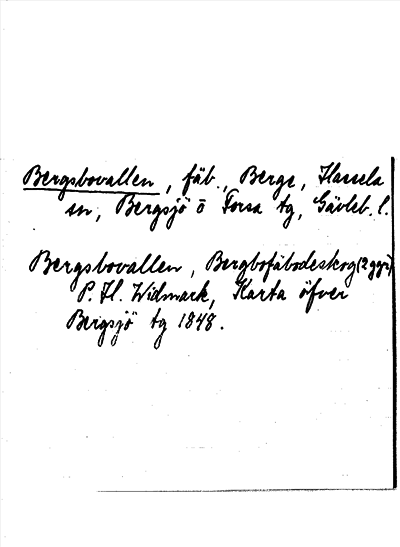 Bergsbovallen, fäb., Berge, Hassela
sn, Bergsjö o Forsa tg, Gävleb. l.
Bergsbovallen, Bergbofäbodeskog (2 ggr)
P. H. Widmark, Karta öfver
Bergsjö tg 1848.